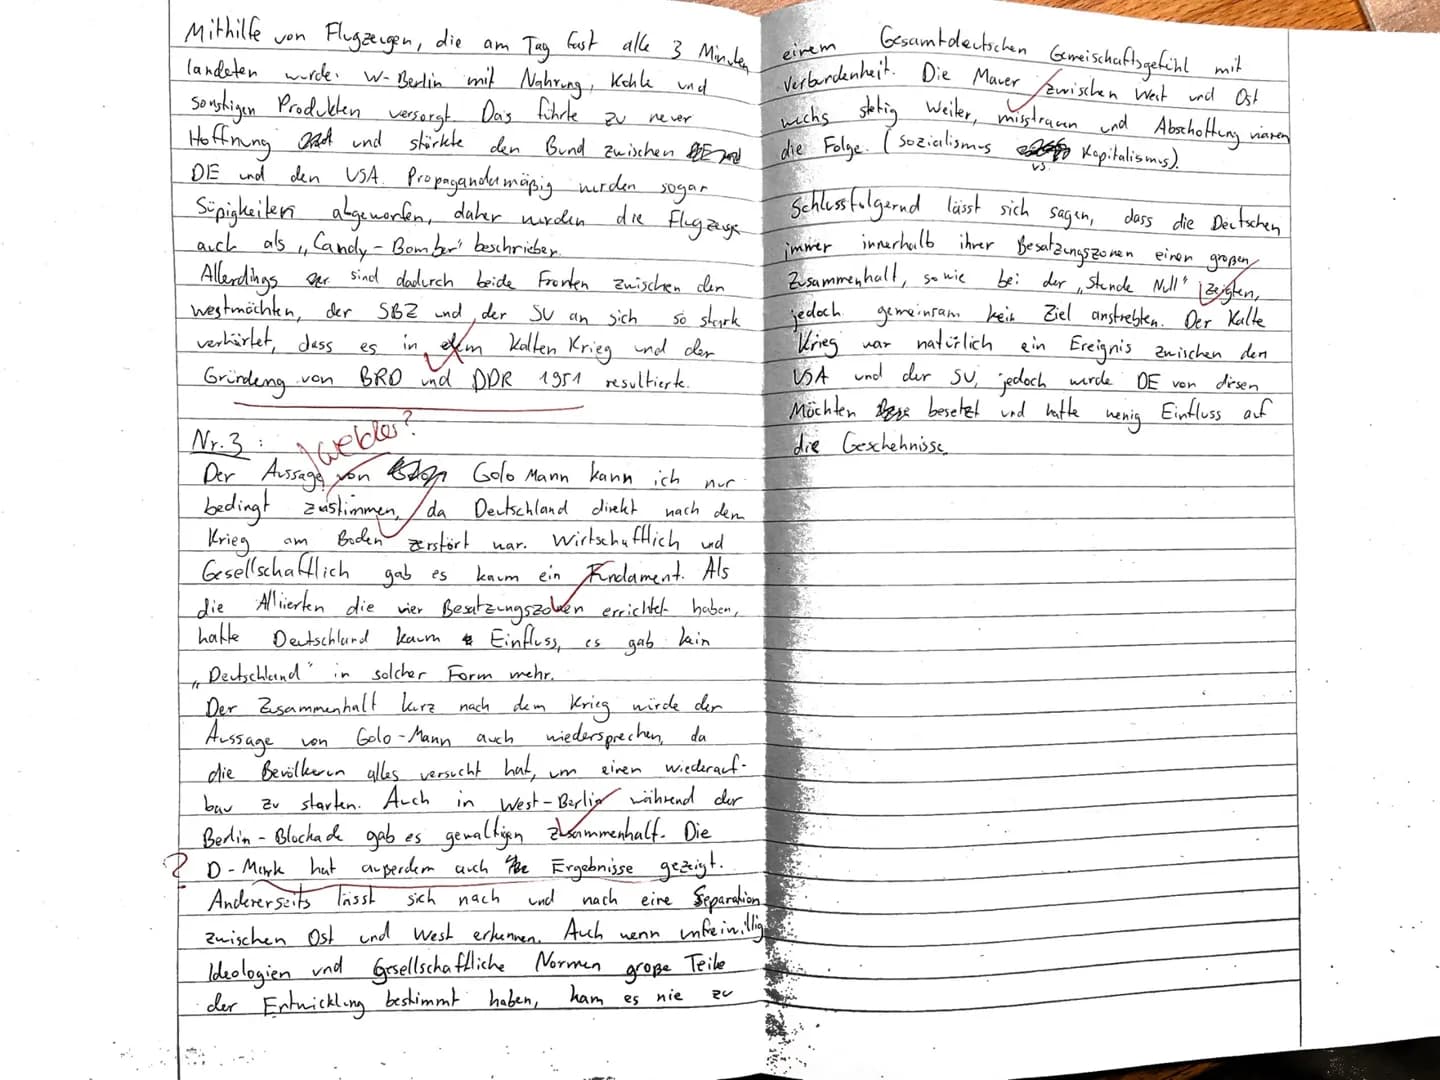 Mithilfe von Flugzeugen, die am Tag fast alle 3 Minuten
landeten wurde W-Berlin mit Nahrung, Kohle und
sonstigen Produkten versorgt. Das führte zu neuer
Hoffnung und stärkte den Bund zwischen
DE und den USA. Propagandamäßig wurden sogar
Süßigkeiten abgeworfen, daher wurden die Flugzeuge
auch als „Candy-Bomber" beschrieben.
Allerdings sind dadurch beide Fronten zwischen den
westmächten, der SBZ und der SU an sich so stark
verhärtet, dass es in dem Kalten Krieg und der
Gründung von BRD und DDR 1951 resultierte.
Nr. 3 :
welcher?
Der Aussage von Golo Mann kann ich nur
bedingt zustimmen, da Deutschland direkt nach dem
Krieg am Boden zerstört war. Wirtschaftlich und
Gesellschaftlich gab es kaum ein Fundament. Als
die Alliierten die vier Besatzungszonen errichtet haben,
hatte Deutschland kaum Einfluss, es gab kein
„Deutschland" in solcher Form mehr.
Der Zusammenhalt kurz nach dem Krieg würde der
Aussage von Golo-Mann auch wiedersprechen, da
die Bevölkerun alles versucht hat, um einen wiederauf-
bau zu starten. Auch in West-Berlin während der
Berlin-Blockade gab es gewaltigen Zusammenhalt. Die
? D-Mark hat außerdem auch Ergebnisse gezeigt.
Andererseits lässt sich nach und nach eine Separation
zwischen Ost und West erkennen. Auch wenn unfreiwillig
Ideologien und Gesellschaftliche Normen große Teile
der Entwicklung bestimmt haben, kam es nie zu
einem Gesamtdeutschen Gemeischaftsgefühl mit
Verbundenheit. Die Mauer zwischen West und Ost
wuchs stetig weiter, misstrauen und Abschottung waren
die Folge. (Sozialismus vs. Kapitalismus).
Schlussfolgernd lässt sich sagen, dass die Deutschen
immer innerhalb ihrer Besatzungszonen einen großen
Zusammenhalt, sowie bei der „Stunde Null" zeigten,
jedoch gemeinsam kein Ziel anstrebten. Der Kalte
Krieg war natürlich ein Ereignis zwischen den
USA und der SU, jedoch wurde DE von diesen
Mächten besetzt und hatte wenig Einfluss auf
die Geschehnisse.